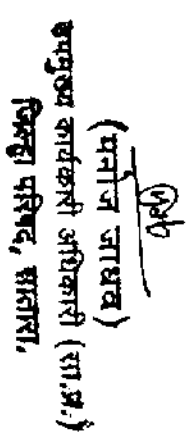 (धनाजी जाधव)
उपमुख्य कार्यकारी अधिकारी (सा.प्र.)
जिल्हा परिषद, सातारा.